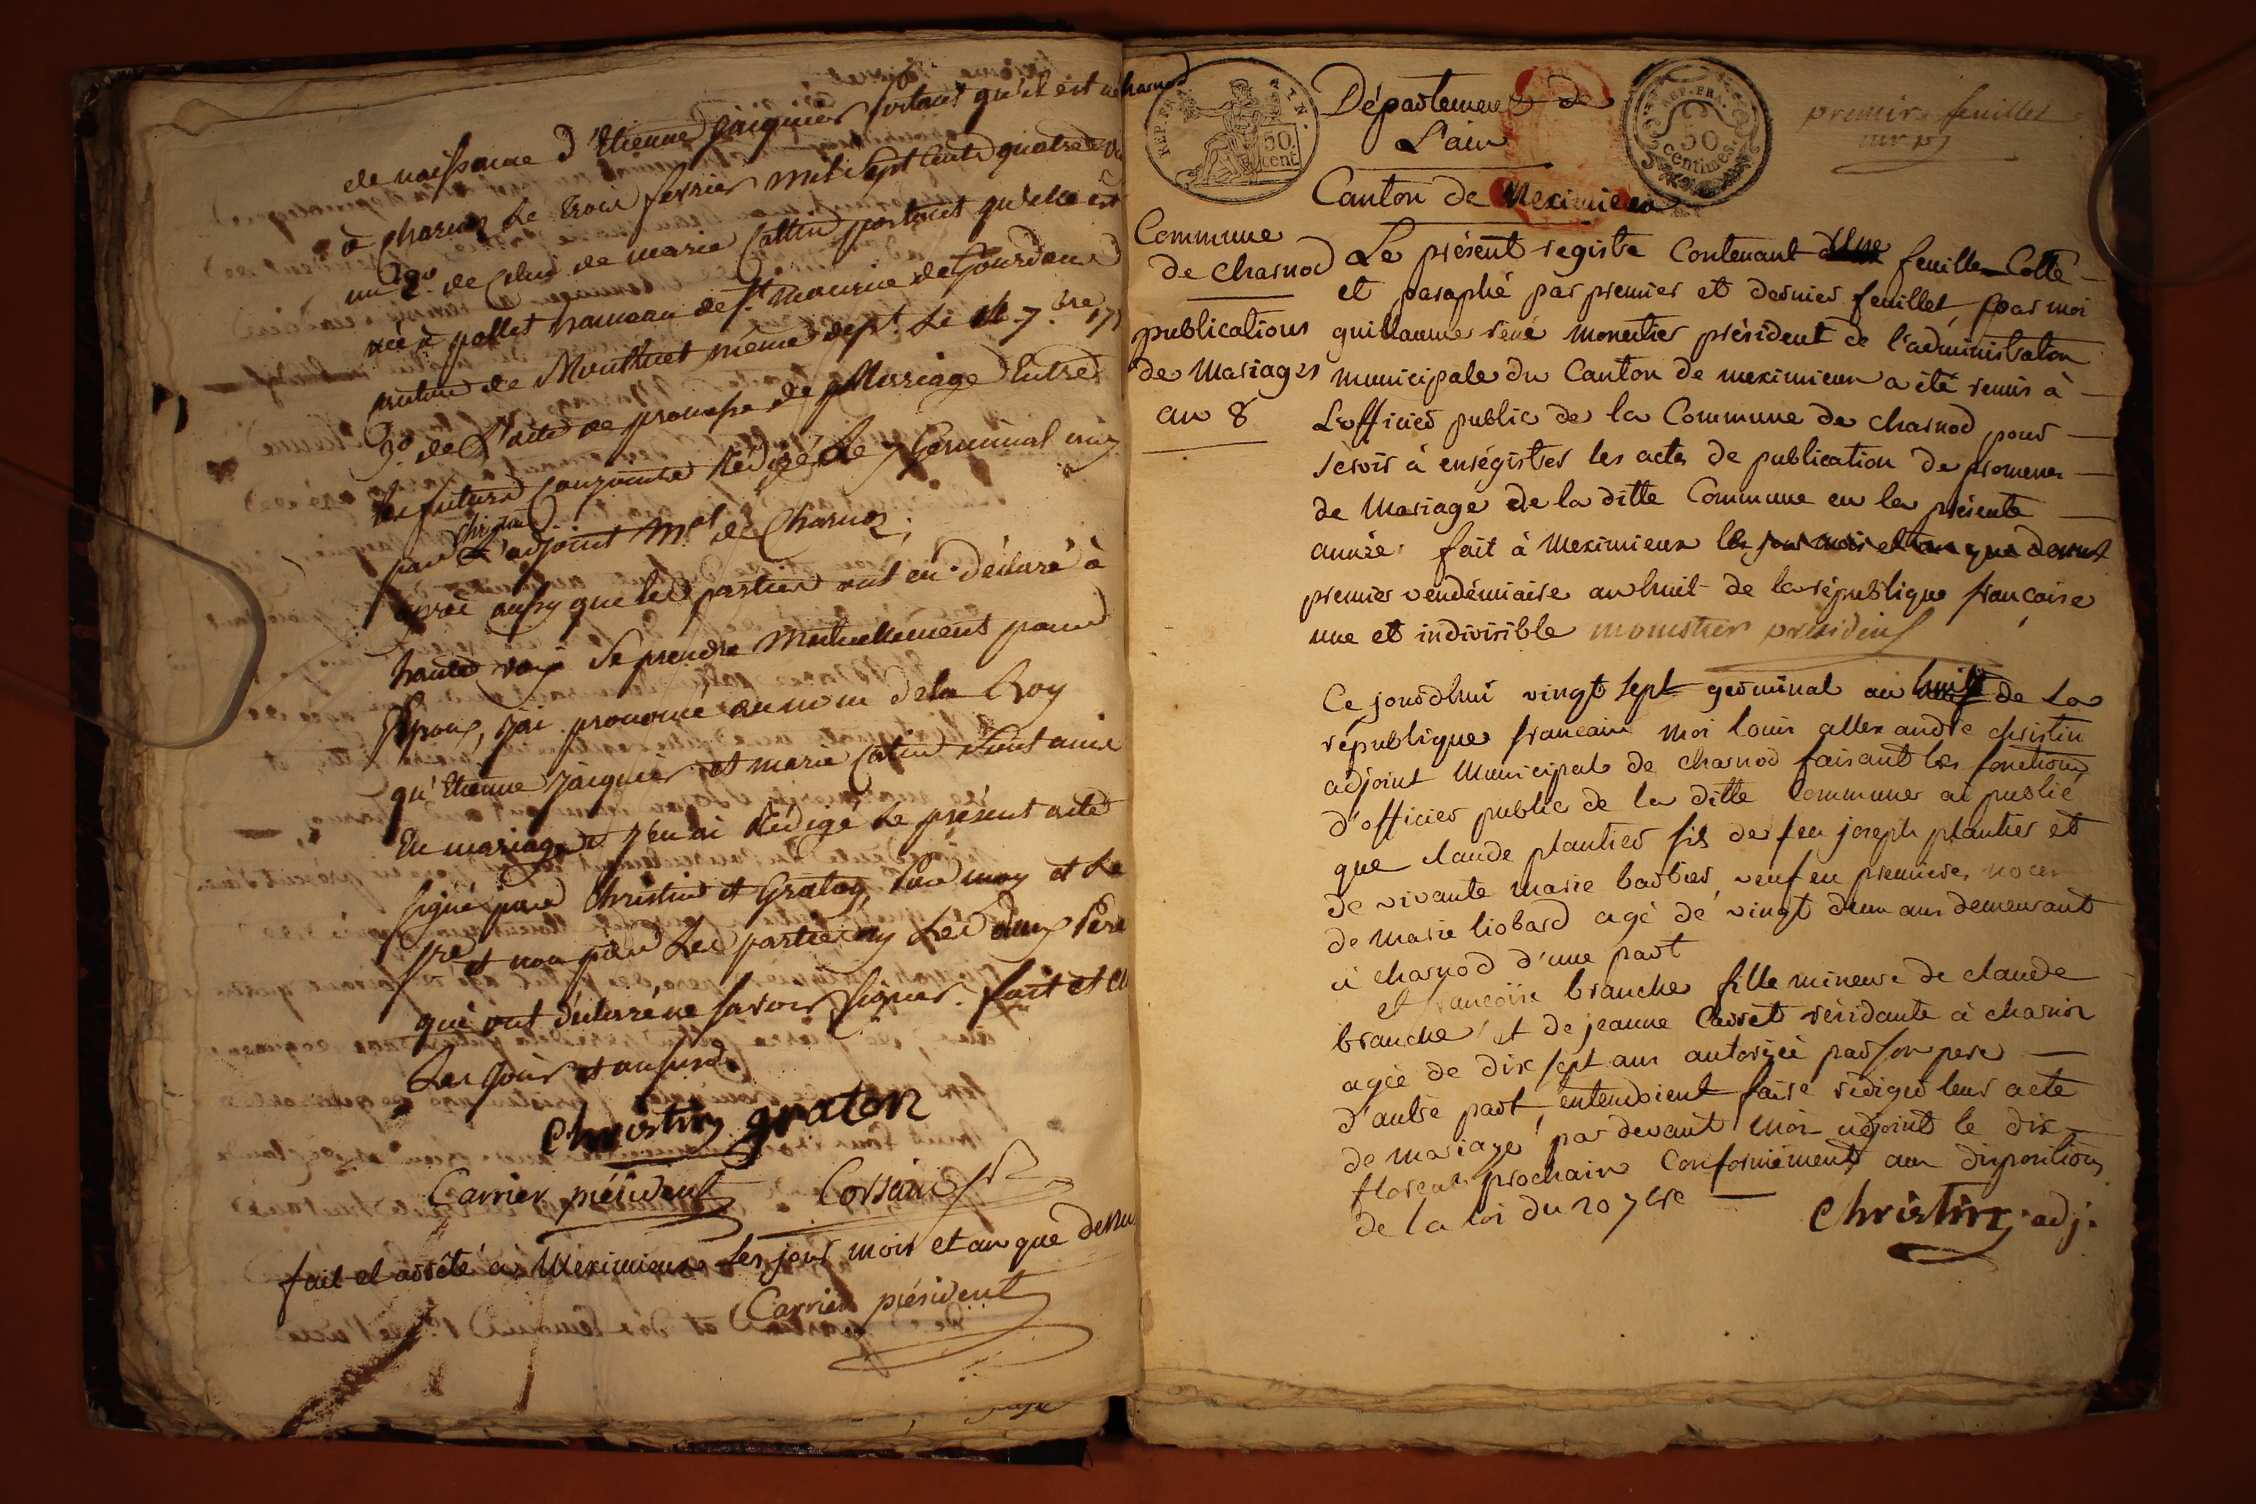 de naissance d'Etienne Jaiquier portant qu'il est né
à Charnoz le trois fevrier mil sept cents quatre
un 2º de Celui de marie Cattin portant qu'elle est
née à pollet hameau de St. Maurice de Gourdans
canton de Montluel même dept. le 7.bre 17
3º. de L'acte de promesse de Mariage Entre
les futurs Conjoints Rédigé Le 7 Germinal
par Christin L'adjoint mpal de Charnoz,
après aussy que les parties ont eu déclaré à
haute voix se prendre Mutuellement pour
Epoux, j'ai prononcé au nom de la Loy
qu'Etienne Jaiquier et marie Catin Sont unis
En mariage et j'en ai Rédigé Le présent acte
signé par Christin et Graton, Par moy et Le
sre et non par Les parties ny Les deux Pere
qui ont déclaré ne savoir signer. fait et
Les jour et an susd.
Christin graton
Carrier président Corsain sre
fait et arrêté à Meximieux les jour mois et an que dessus
Carrier président
charnod
REP. FRA.
50
cent
Département de
L'ain
REP. FRA.
50
centimes.
premier feuillet
Canton de Meximieux
Commune
de charnod
publications
de Mariages
an 8
Le présent registre Contenant une feuille Cotté
et paraphé par premier et dernier feuillet, par moi
guillaume réné monestier président de l'administration
municipale du Canton de meximieux a été remis à
L'officier public de la Commune de charnod pour
servir à enrégistrer les actes de publication de promesses
de Mariage de la ditte Commune en la présente
année. fait à Meximieux les jour mois et an que dessus
premier vendémiaire an huit de la république francaise
une et indivisible monestier president
Ce jourdhui vingt sept germinal an huit de la
république francaise moi louis allexandre christin
adjoint Municipal de charnod faisant les fonctions
d'officier public de la ditte Commune ai publié
que claude plantier fils de feu joseph plantier et
de vivante marie barbier, veuf en premieres noces
de marie liobard agé de vingt deux ans demeurant
à charnod d'une part
et francoise branche fille mineure de claude
branche et de jeanne Carret résidante à charnoz
agée de dix sept ans autorisée par son pere
d'autre part, entendoient faire rédiger leur acte
de mariage par devant moi adjoint le dix
floreal prochain Conformément aux dispositions
de la loi du 20 7bre
Christin, adj.